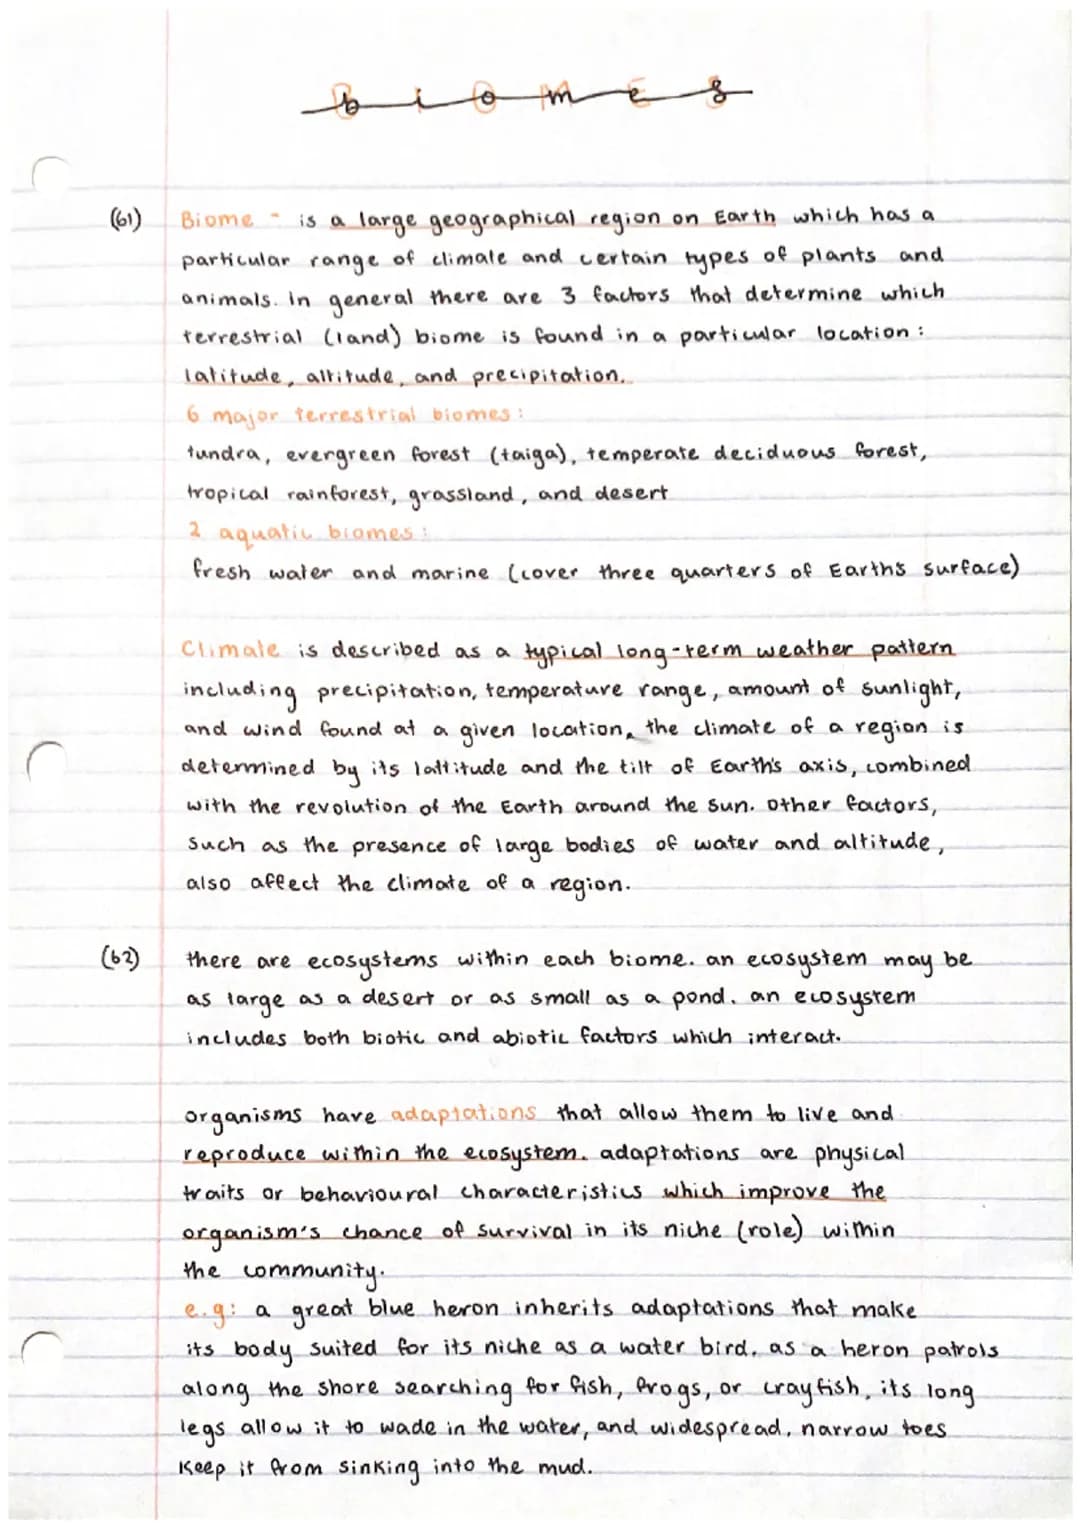 biomes
(61) Biome - is a large geographical region on Earth which has a
particular range of climate and certain types of plants and
animals. in general there are 3 factors that determine which
terrestrial (land) biome is found in a particular location:
latitude, altitude, and precipitation.
6 major terrestrial biomes:
tundra, evergreen forest (taiga), temperate deciduous forest,
tropical rainforest, grassland, and desert
2 aquatic biomes:
fresh water and marine (cover three quarters of Earth's surface)
Climate is described as a typical long-term weather pattern
including precipitation, temperature range, amount of sunlight,
and wind found at a given location, the climate of a region is
determined by its lattitude and the tilt of Earth's axis, combined
with the revolution of the Earth around the sun. Other factors,
such as the presence of large bodies of water and altitude,
also affect the climate of a region.
(62) there are ecosystems within each biome. an ecosystem may be
as large as a desert or as small as a pond. an ecosystem
includes both biotic and abiotic factors which interact.
organisms have adaptations that allow them to live and
reproduce within the ecosystem. adaptations are physical
traits or behavioural characteristics which improve the
organism's chance of survival in its niche (role) within
the community.
e.g: a great blue heron inherits adaptations that make
its body suited for its niche as a water bird. as a heron patrols
along the shore searching for fish, frogs, or crayfish, its long
legs allow it to wade in the water, and widespread, narrow toes
keep it from sinking into the mud.